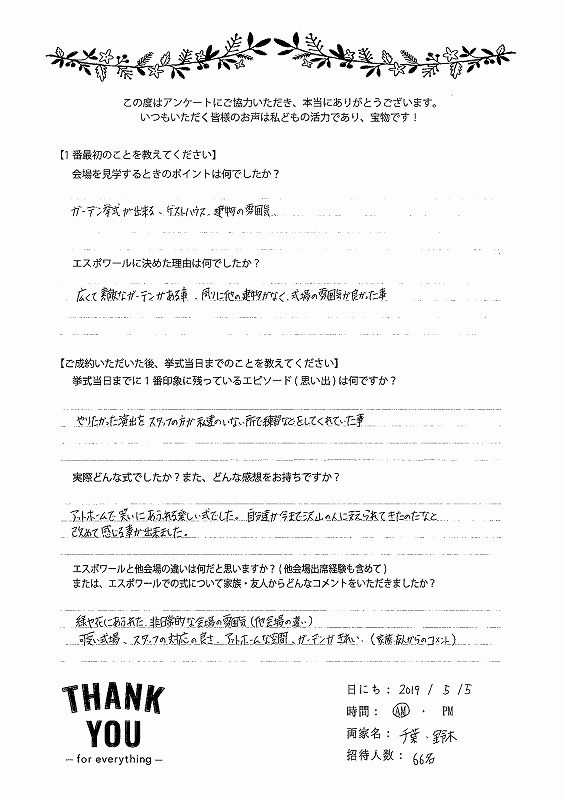 この度はアンケートにご協力いただき、本当にありがとうございます。
いつもいただく皆様のお声は私どもの活力であり、宝物です！
【1番最初のことを教えてください】
会場を見学するときのポイントは何でしたか？
ガーデン挙式が出来る、ゲストハウス、建物の雰囲気
エスポワールに決めた理由は何でしたか？
広くて素敵なガーデンがある事、周りに他の建物がなく、式場の雰囲気が良かった事
【ご成約いただいた後、挙式当日までのことを教えてください】
挙式当日までに1番印象に残っているエピソード(思い出)は何ですか？
やりたかった演出をスタッフの方が私達のいない所で練習などをしてくれていた事
実際どんな式でしたか？また、どんな感想をお持ちですか？
アットホームで笑いにあふれる楽しい式でした。自分達が今まで沢山の人に支えられてきたのだなと
改めて感じる事が出来ました。
エスポワールと他会場の違いは何だと思いますか？(他会場出席経験も含めて)
または、エスポワールでの式について家族・友人からどんなコメントをいただきましたか？
緑や花にあふれた、非日常的な会場の雰囲気(他会場の違い)
可愛い式場、スタッフの対応の良さ、アットホームな空間、ガーデンがきれい、(家族、友人からのコメント)
THANK
YOU
– for everything –
日にち： 2019 / 5 / 5
時間： AM ・ PM
両家名： 千葉・鈴木
招待人数： 66名